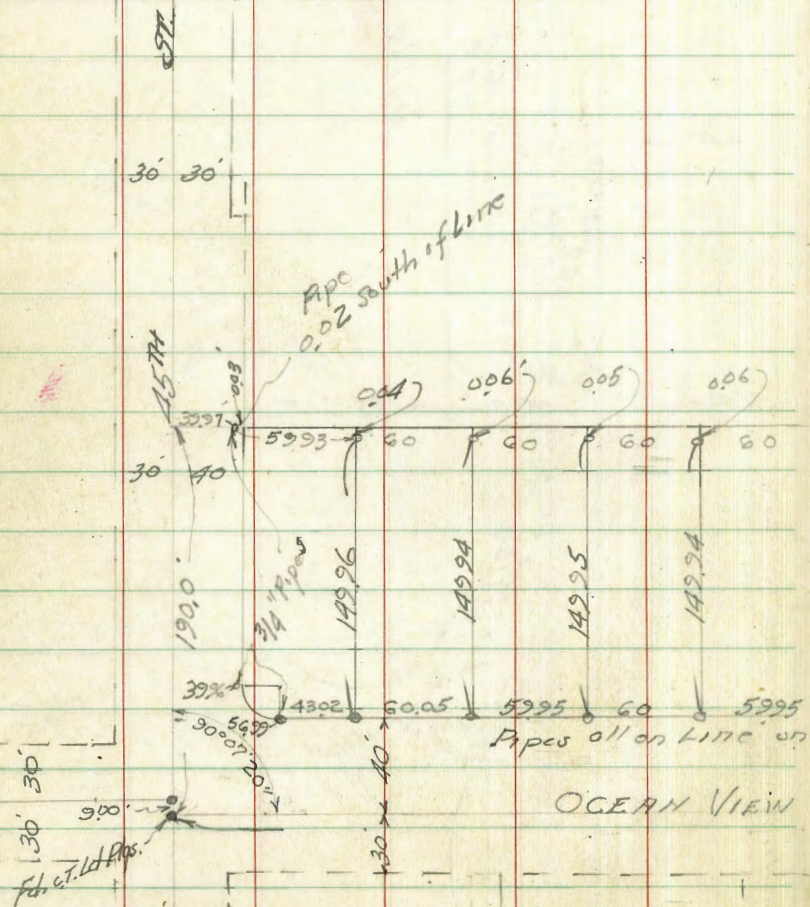 ST.
30' 30'
Pipe
0.02 South of Line
45TH
0.03'
0.04
0.06'
0.05
0.06
39.97
59.93 60 60 60 60
30' 40
190.0'
3/4" Pipes
149.96
149.94
149.95
149.94
39.96
43.02 60.05 59.95 60 59.95
56.99
90°07'20"
Pipes all on Line on
40'
30'
30'
30'
9.00'
OCEAN VIEW
Fd. C.T. Ld Plgs.